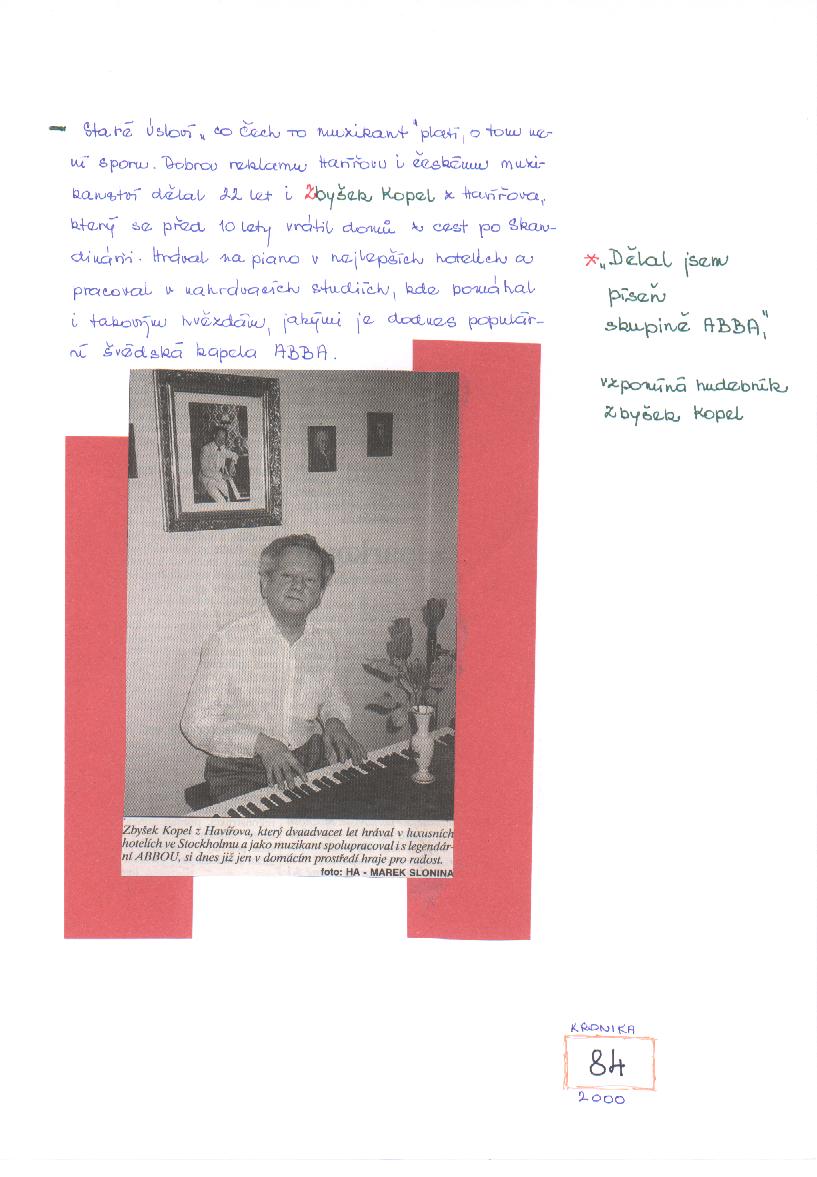 - Staré úsloví „co Čech to muzikant" platí, o tom ne-
ní sporu. Dobrou reklamu Havířovu i českému muzi-
kanství dělal 22 let i Zbyšek Kopel z Havířova,
který se před 10 lety vrátil domů z cest po Skan-
dinávii. Hrával na piano v nejlepších hotelích a
pracoval v nahrávacích studiích, kde pomáhal
i takovým hvězdám, jakými je dodnes populár-
ní švédská kapela ABBA.
* „Dělal jsem
píseň
skupině ABBA,"
vzpomíná hudebník
Zbyšek Kopel
Zbyšek Kopel z Havířova, který dvaadvacet let hrával v luxusních
hotelích ve Stockholmu a jako muzikant spolupracoval i s legendár-
ní ABBOU, si dnes již jen v domácím prostředí hraje pro radost.
foto: HA - MAREK SLONINA
KRONIKA
84
2000